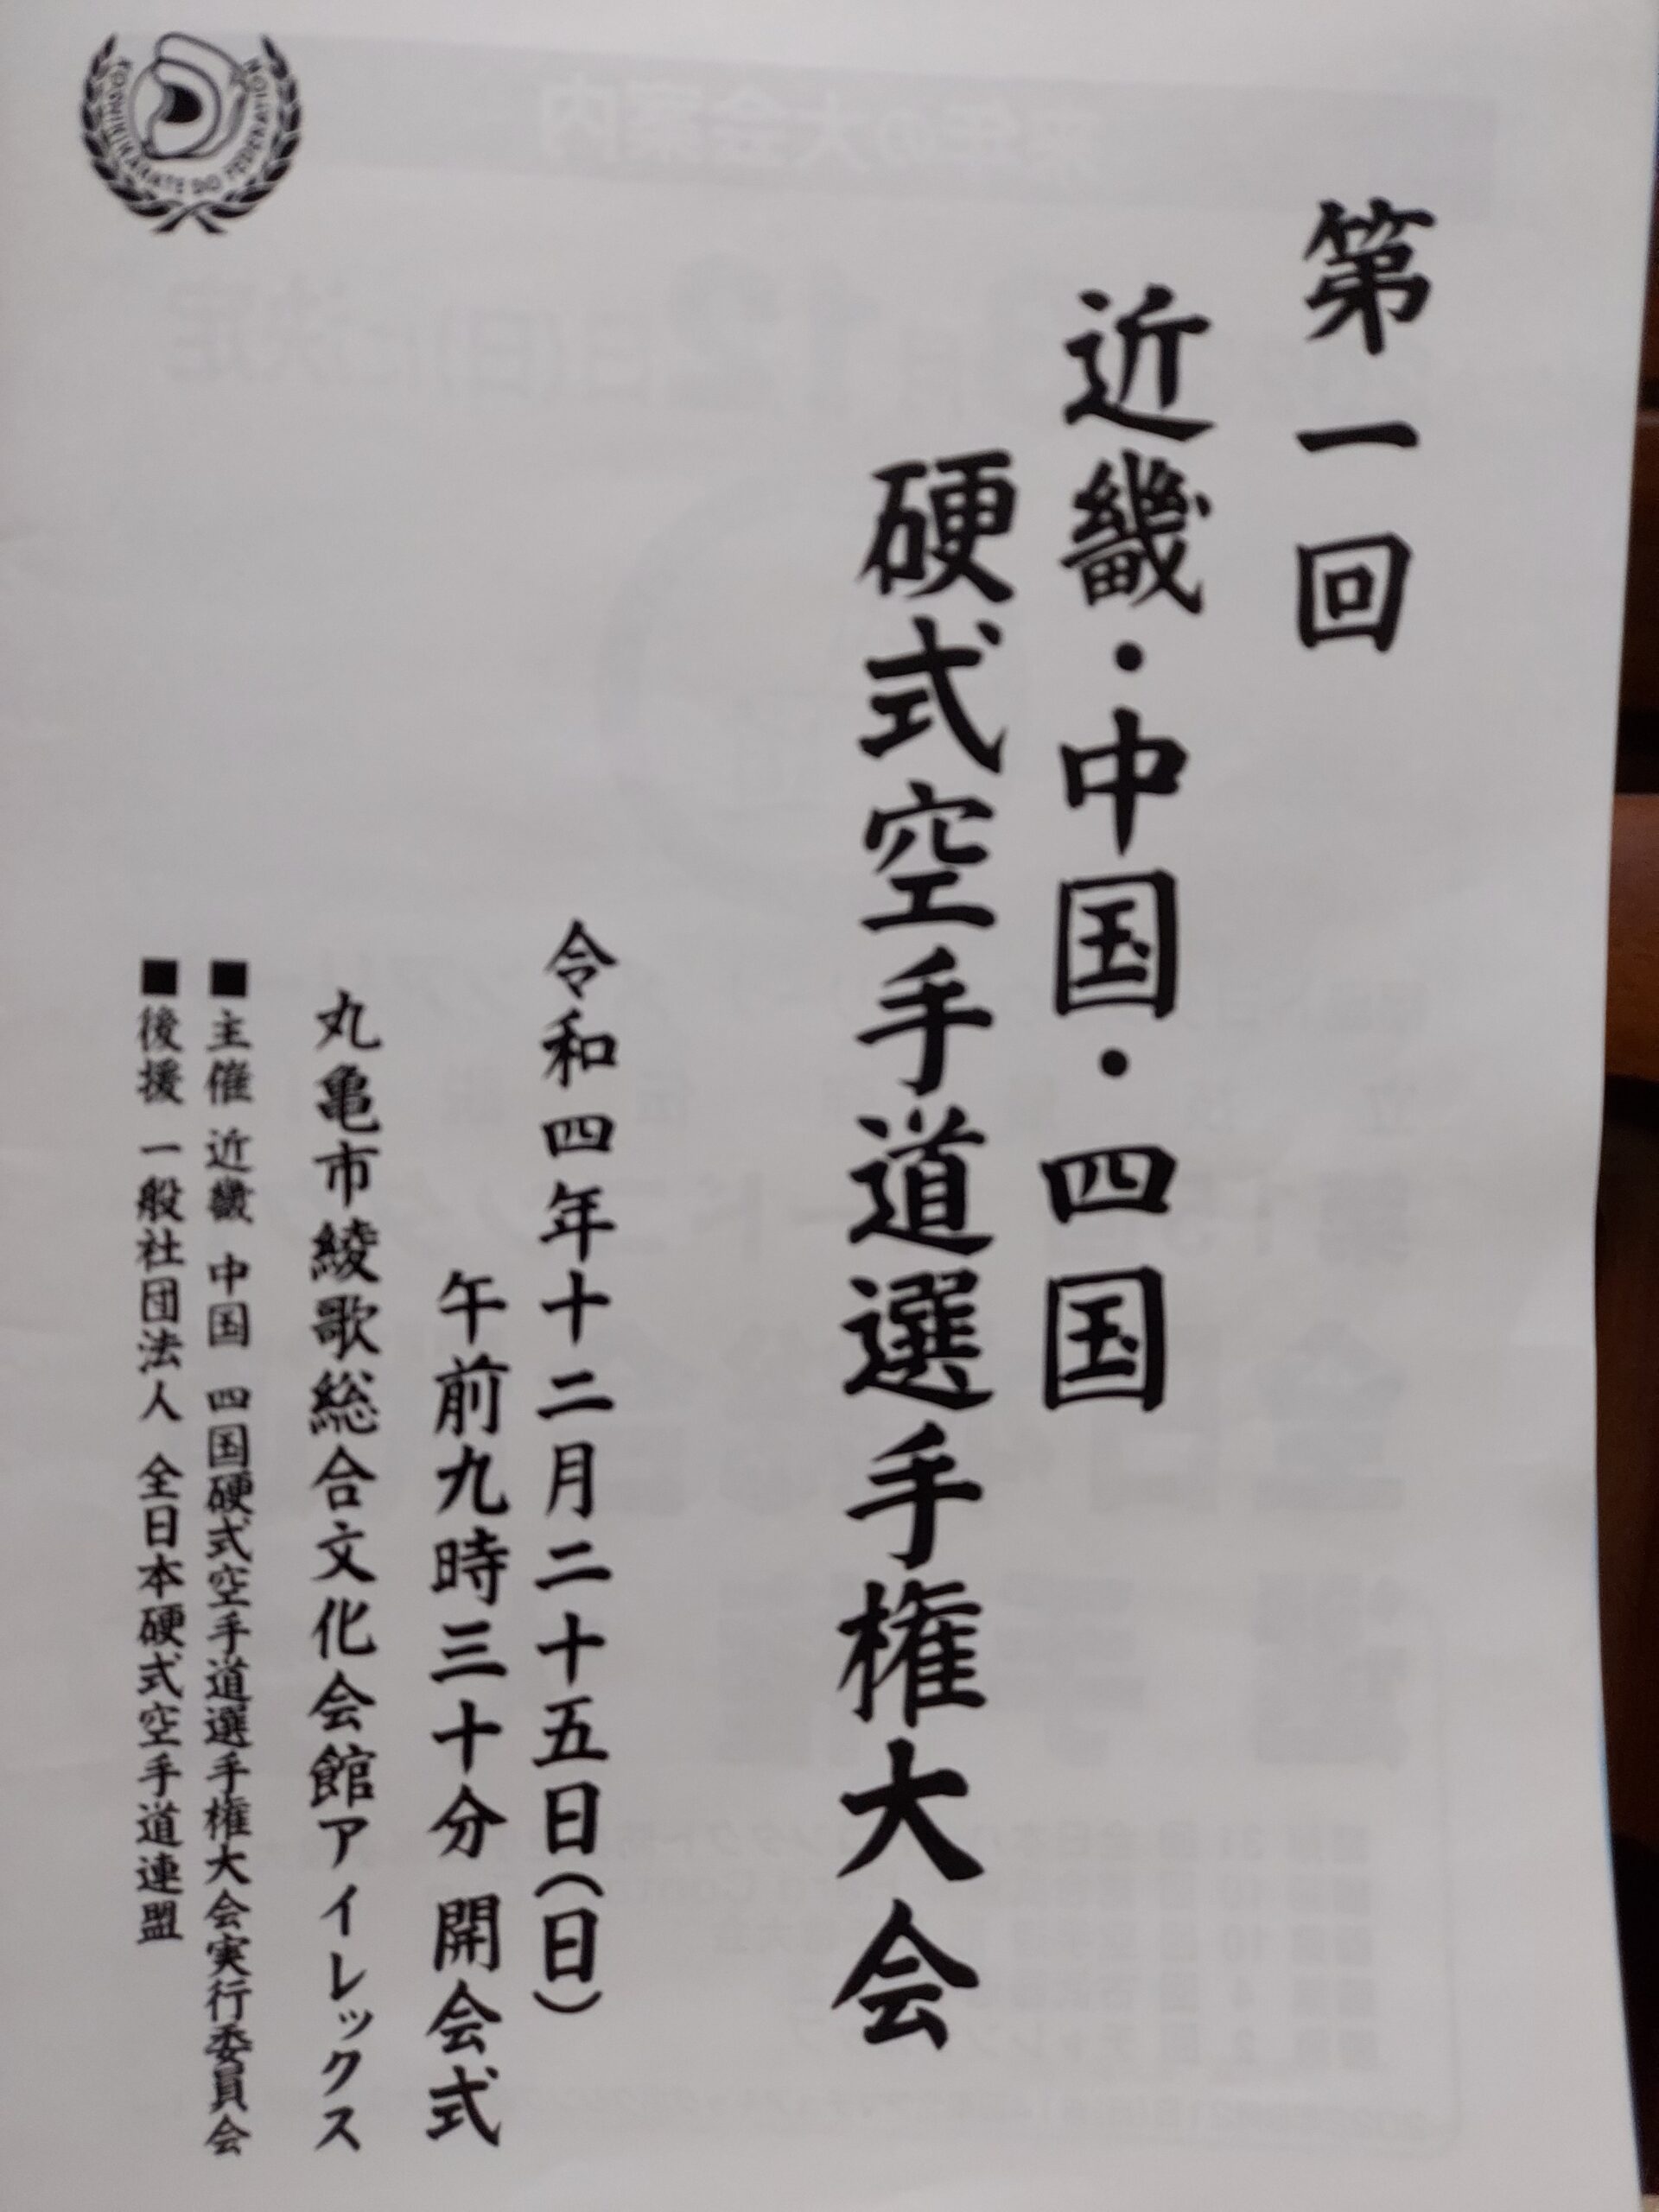 第一回
近畿・中国・四国
硬式空手道選手権大会
令和四年十二月二十五日(日)
午前九時三十分 開会式
丸亀市綾歌総合文化会館アイレックス
■主催 近畿 中国 四国硬式空手道選手権大会実行委員会
■後援 一般社団法人 全日本硬式空手道連盟
KOSHIKI KARATE DO FEDERATION
来年の大会案内